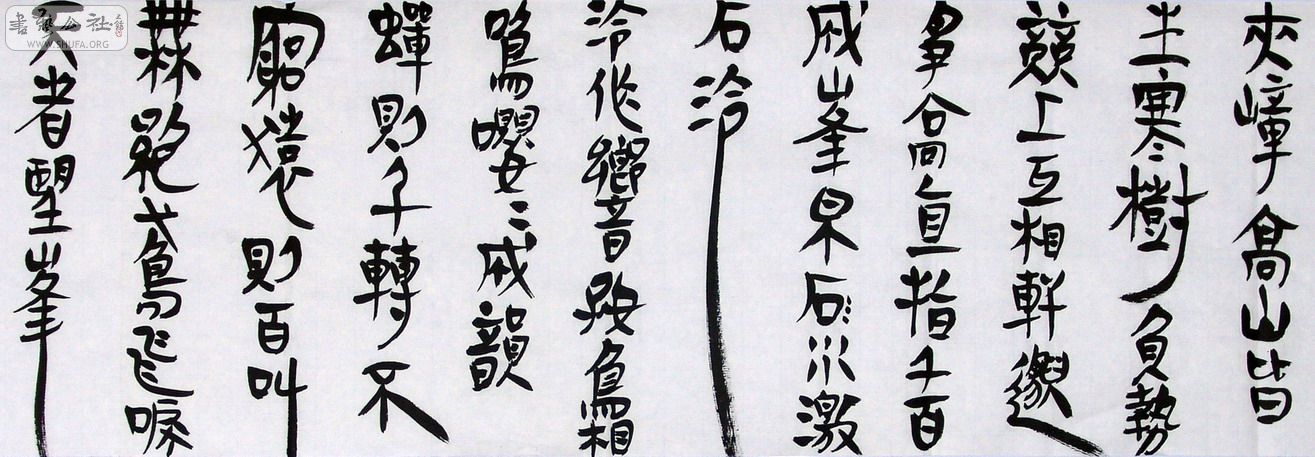 夾嶂高山皆
生寒樹負勢
競上互相軒邈
爭高直指千百
成峯泉石水激
石泠
泠作響好鳥相
鳴嚶〻成韻
蟬則千轉不
窮猿則百叫
無絕鳶飛唳
天者望峯
書法公社
WWW.SHUFA.ORG